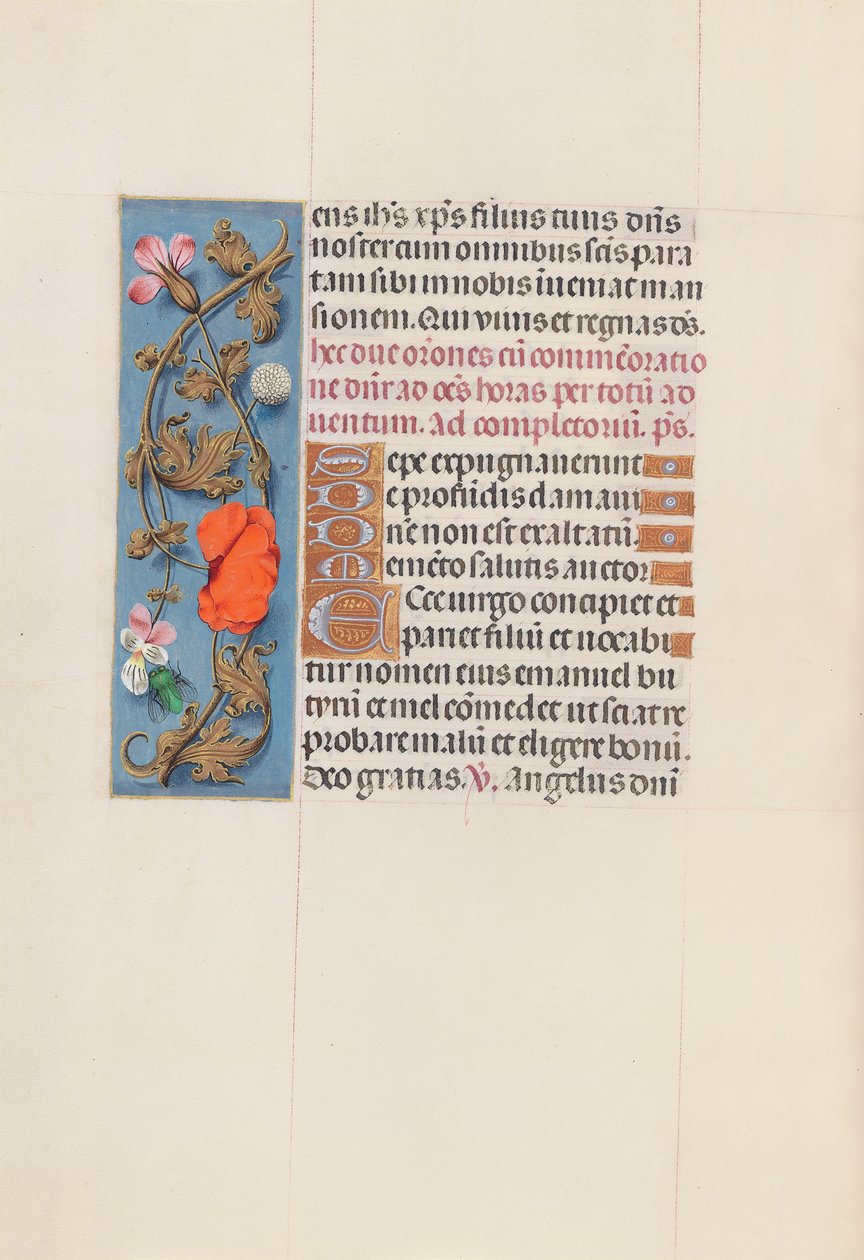 ens ih̅s xp̅s filius tuus dn̅s
noster cum omnibus sc̅is para
tam sibi in nobis īueniat man
sionem. Qui viuis et regnas ds̅.
hec due oro̅nes cū comme̅oratio
ne dn̅r ad oe̅s horas per totū ad
uentum. Ad completoriū. ps̅.
Sepe expugnauerunt
De profūdis clamaui
Dn̅e non est exaltatū.
Meme̅to salutis auctor
Ecce uirgo concipiet et
pariet filiū et uocabi
tur nomen eius emanuel bu
tyrū et mel co̅medet ut sciat re
probare malū et eligere bonū.
Deo gratias. V̷. Angelus dn̅i